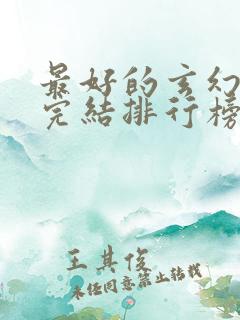 最好的玄幻
完結排行榜
王其俊
未经同意禁止转载